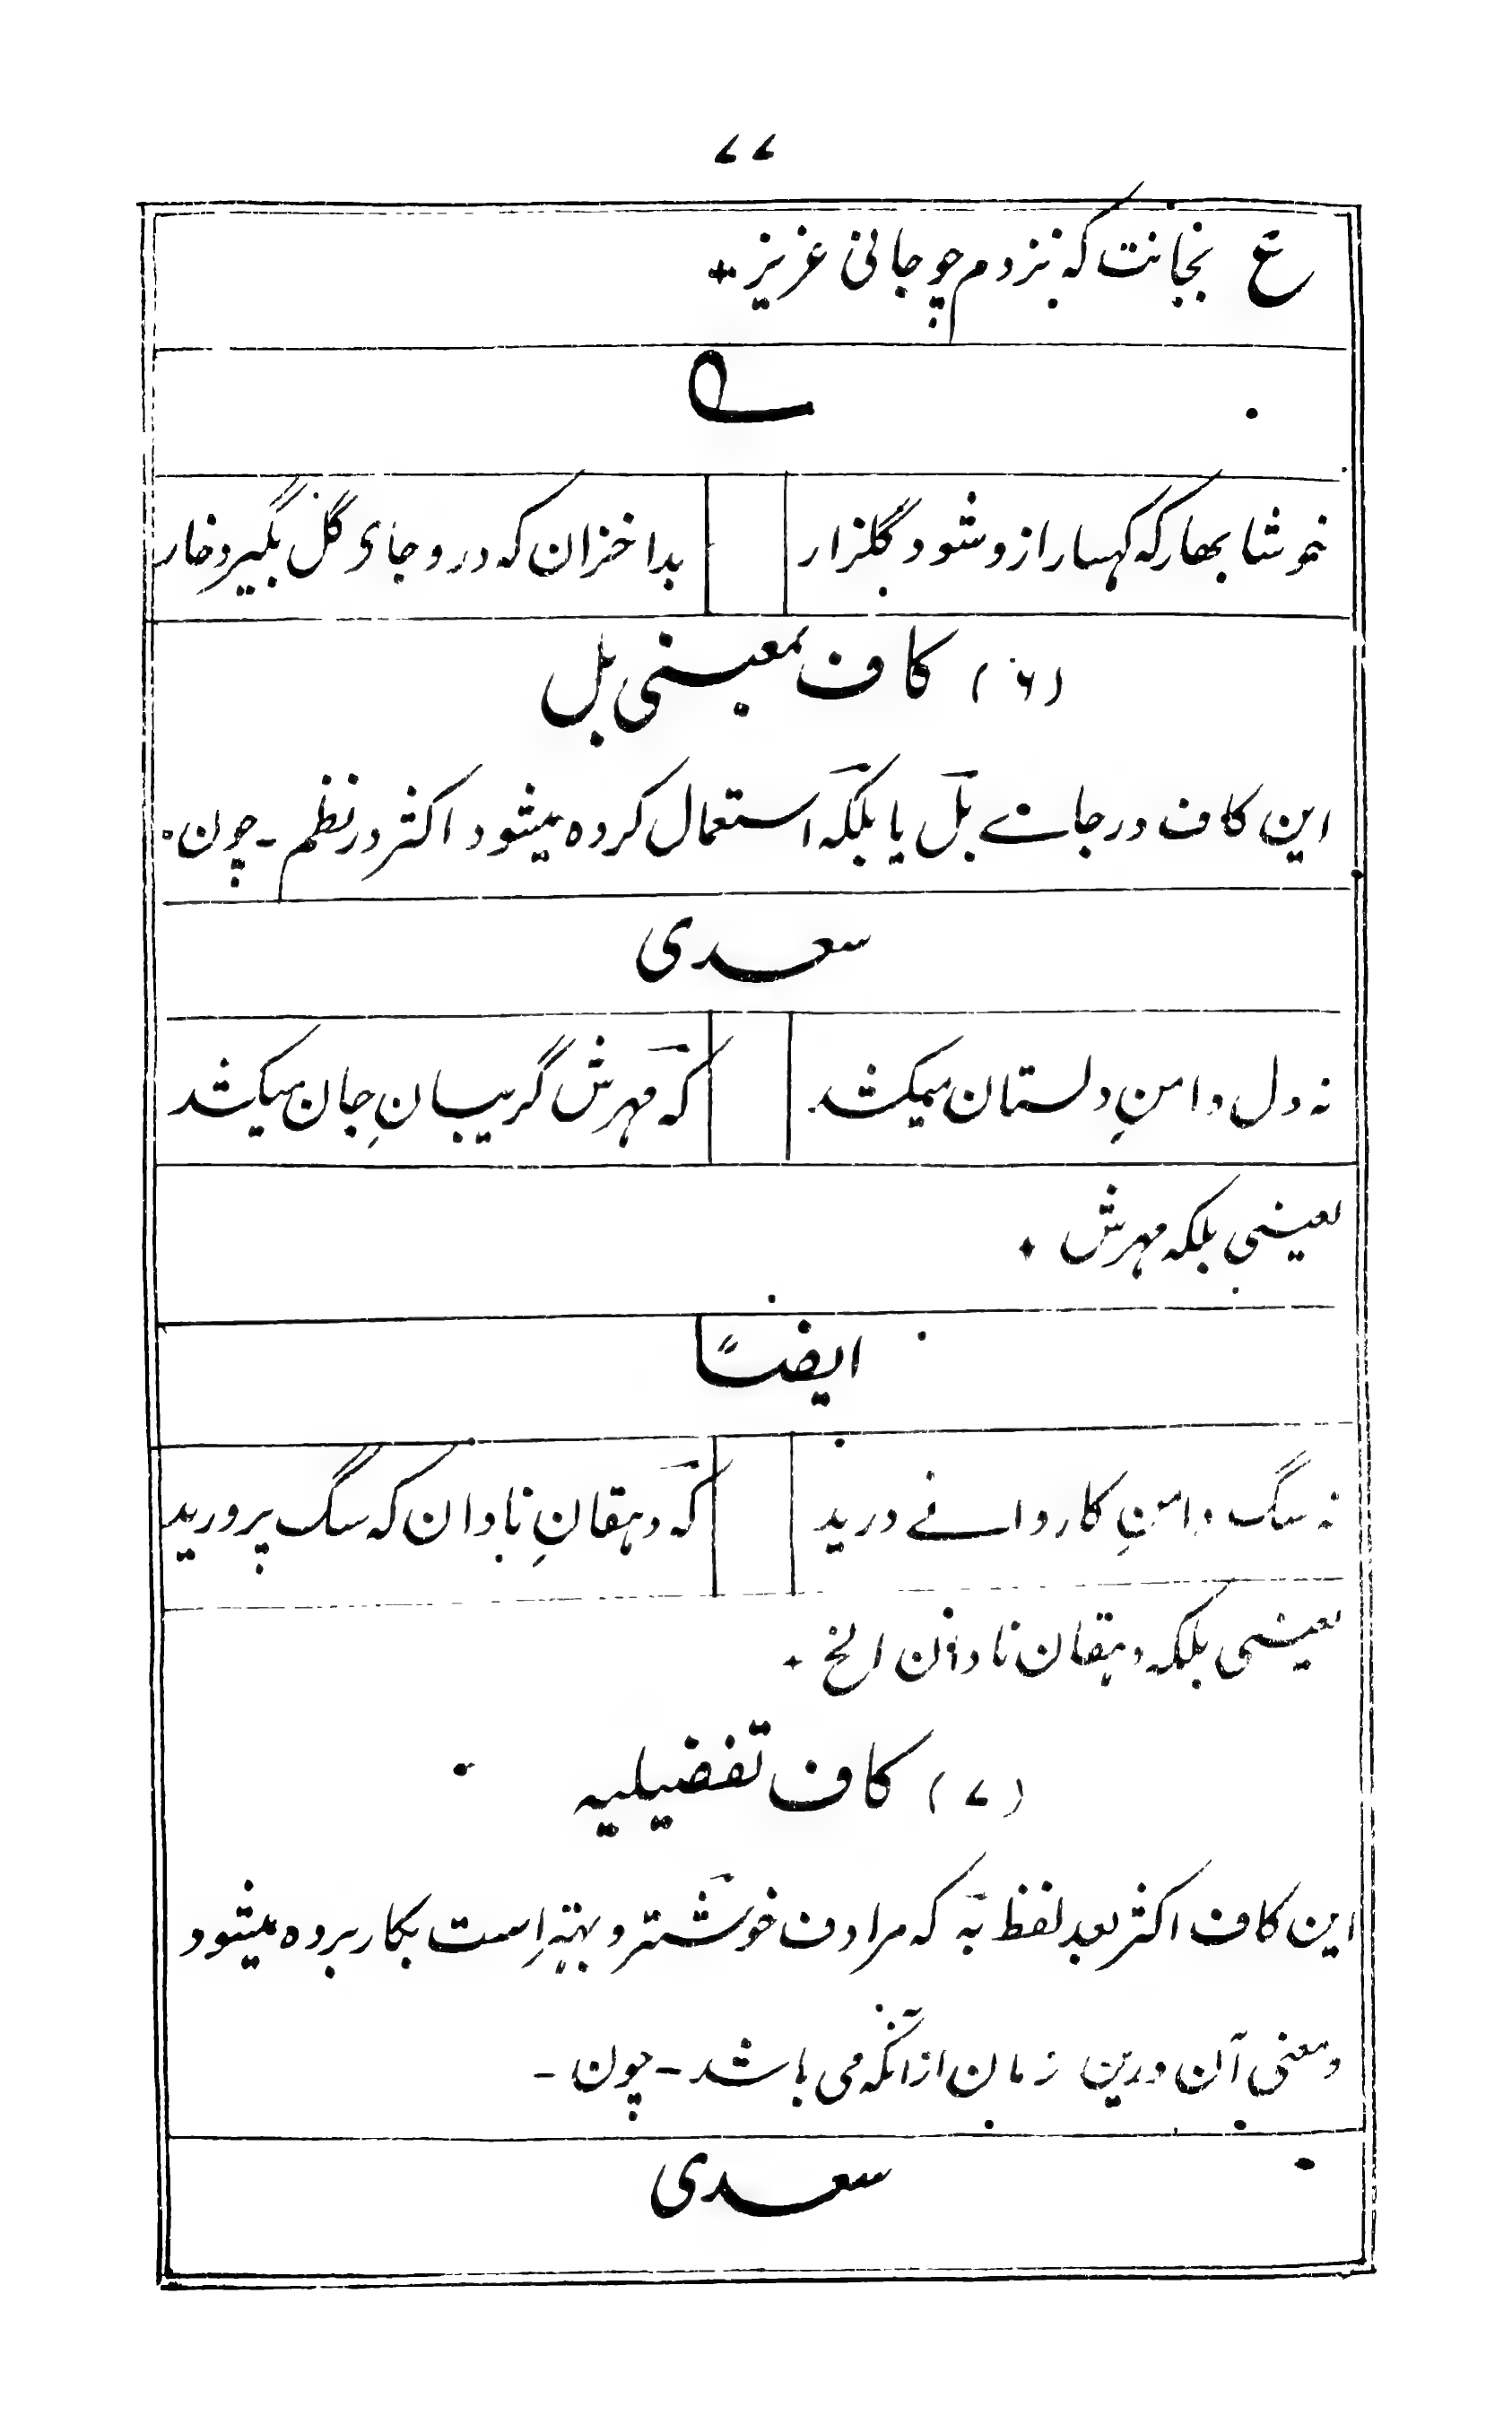 ۷۷
ع بجانت که نزدم چو جانی عزیز
خوشا بهار که کهسار ازو شود گلزار
بدا خزان که درو جای گل بگیرد خار
(۶) کاف بمعنی بل
این کاف در جاے بل یا بلکه استعمال کرده میشود اکثر در نظم ـ چون
سعدی
نه دل دامنِ دلستان میکشد
که مهرش گریبانِ جان میکشد
یعنی بلکه مهرش
ایضاً
نه سگ دامنِ کاروانے درید
که دهقانِ نادان که سگ پرورید
یعنی بلکه دهقان نادان الخ
(۷) کاف تفضیلیه
این کاف اکثر بعد لفظ به که مرادف خوشتر و بهتر است بکار برده میشود
و معنی آن درین زمان ازآنکه می باشد ـ چون ـ
سعدی